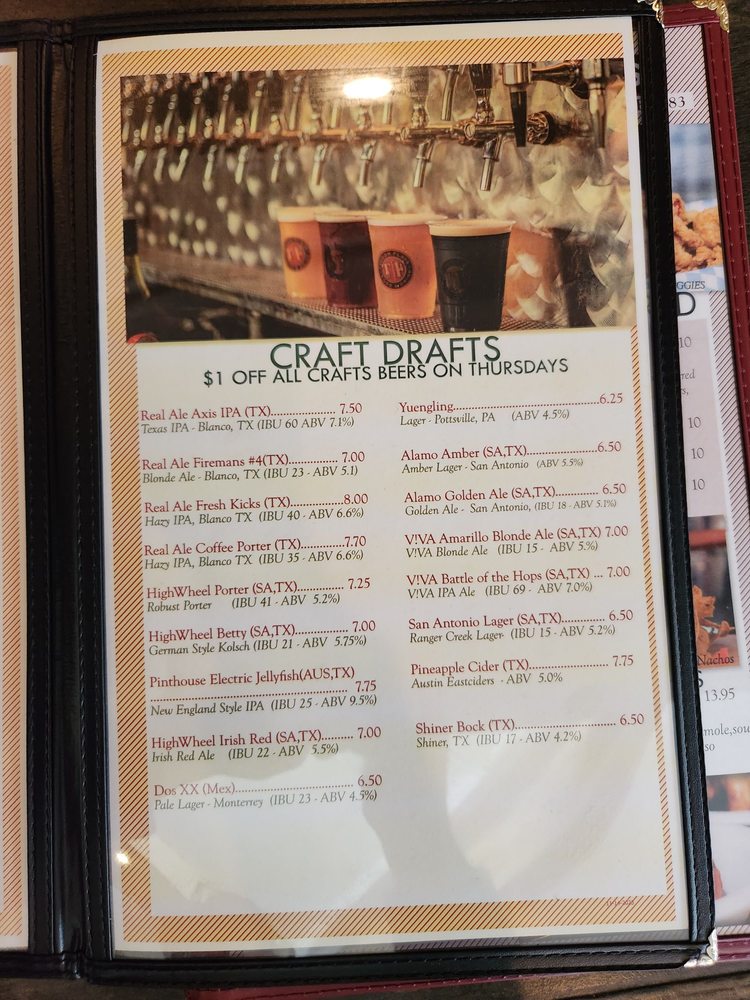 CRAFT DRAFTS
$1 OFF ALL CRAFTS BEERS ON THURSDAYS
Real Ale Axis IPA (TX)..................... 7.50
Texas IPA - Blanco, TX (IBU 60 ABV 7.1%)
Real Ale Firemans #4(TX)................ 7.00
Blonde Ale - Blanco, TX (IBU 23 - ABV 5.1)
Real Ale Fresh Kicks (TX).................8.00
Hazy IPA, Blanco TX (IBU 40 - ABV 6.6%)
Real Ale Coffee Porter (TX)..............7.70
Hazy IPA, Blanco TX (IBU 35 - ABV 6.6%)
HighWheel Porter (SA,TX)............... 7.25
Robust Porter (IBU 41 - ABV 5.2%)
HighWheel Betty (SA,TX)................. 7.00
German Style Kolsch (IBU 21 - ABV 5.75%)
Pinthouse Electric Jellyfish(AUS,TX)
................................................................ 7.75
New England Style IPA (IBU 25 - ABV 9.5%)
HighWheel Irish Red (SA,TX).......... 7.00
Irish Red Ale (IBU 22 - ABV 5.5%)
Dos XX (Mex)...................................... 6.50
Pale Lager - Monterrey (IBU 23 - ABV 4.5%)
Yuengling................................................6.25
Lager - Pottsville, PA (ABV 4.5%)
Alamo Amber (SA,TX)......................6.50
Amber Lager - San Antonio (ABV 5.5%)
Alamo Golden Ale (SA,TX)............. 6.50
Golden Ale - San Antonio, (IBU 18 - ABV 5.1%)
V!VA Amarillo Blonde Ale (SA,TX) 7.00
V!VA Blonde Ale (IBU 15 - ABV 5.%)
V!VA Battle of the Hops (SA,TX) ... 7.00
V!VA IPA Ale (IBU 69 - ABV 7.0%)
San Antonio Lager (SA,TX).............. 6.50
Ranger Creek Lager- (IBU 15 - ABV 5.2%)
Pineapple Cider (TX)......................... 7.75
Austin Eastciders - ABV 5.0%
Shiner Bock (TX)................................ 6.50
Shiner, TX (IBU 17 - ABV 4.2%)
83
GGIES
D
10
10
10
Nachos
S
13.95
so